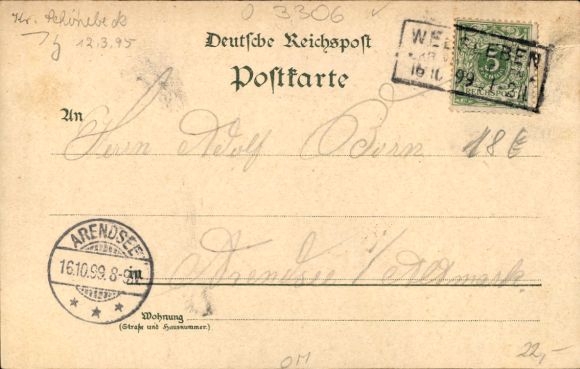 Kr. Schönebeck
12.3.95
0 3306
Deutsche Reichspost
Postkarte
5
REICHSPOST
16.10.99
An
Herrn Adolf Born
18 €
ARENDSEE
16.10.99. 8-9
in
Arendsee i/Altmark
Wohnung
(Straße und Hausnummer.)
OM
22,-